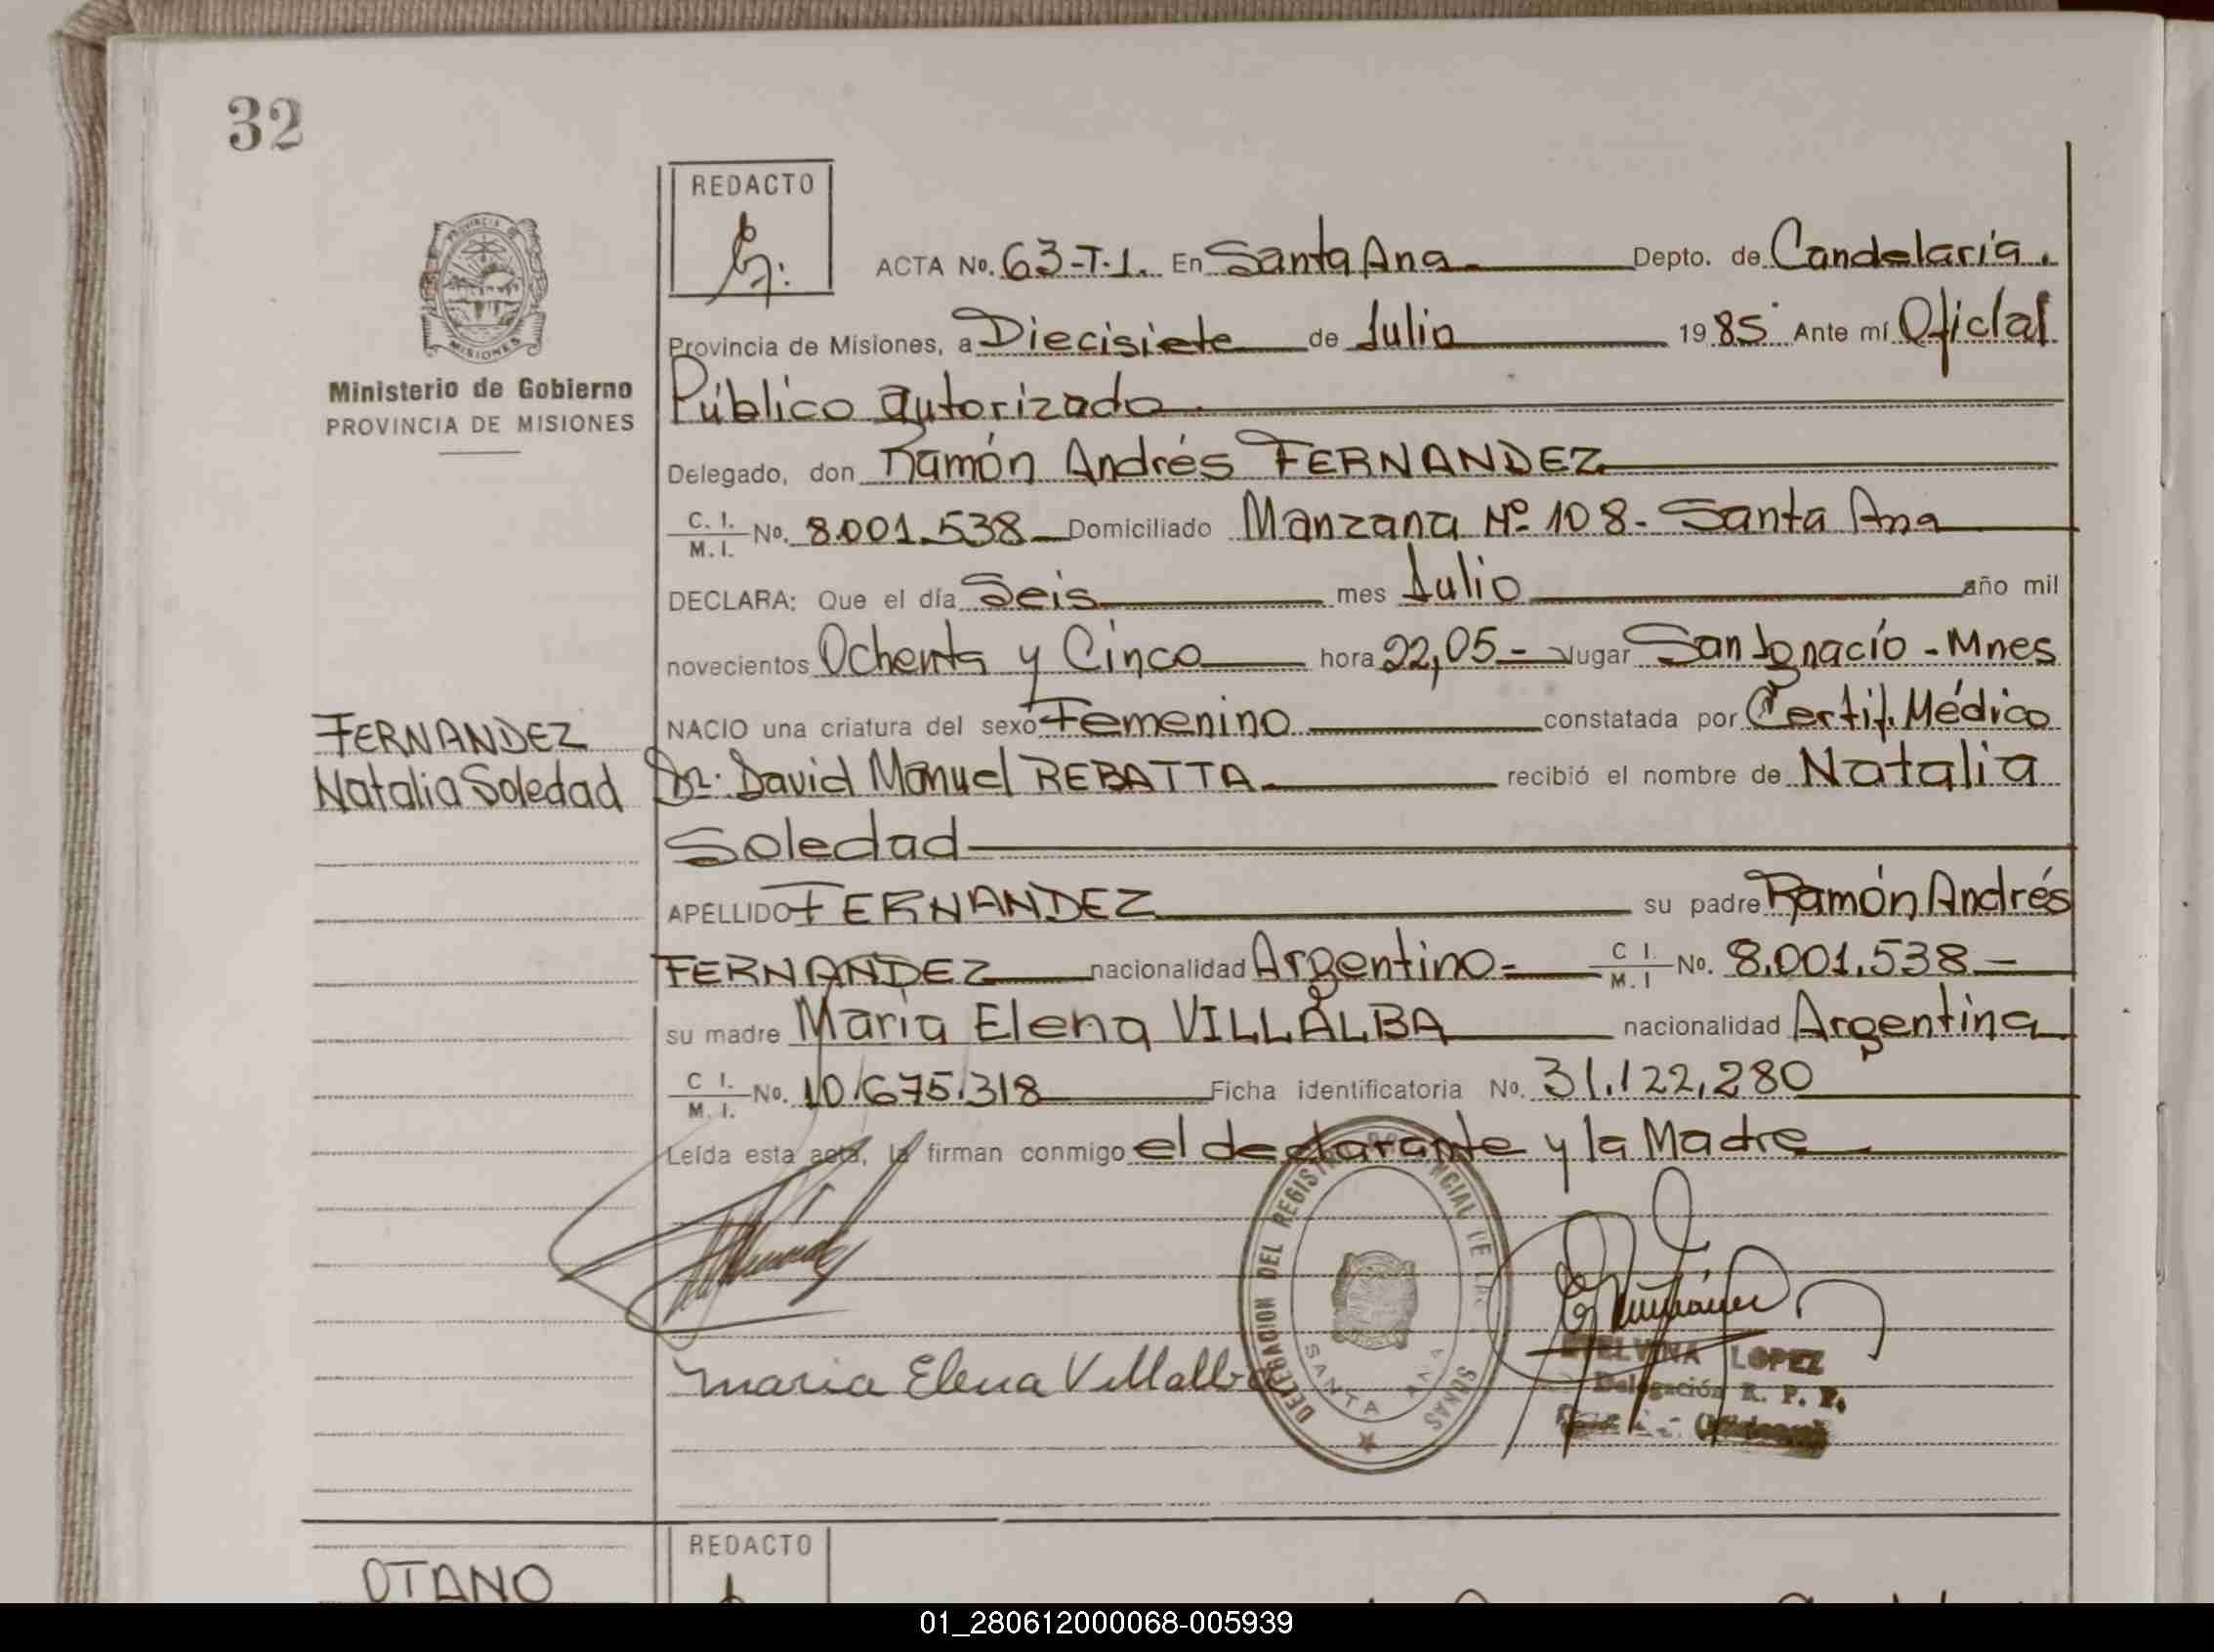 32
REDACTO
ACTA No. 63-T.1. En Santa Ana Depto. de Candelaria.
Provincia de Misiones, a Diecisiete de Julio 1985 Ante mí Oficial
Público autorizado.
PROVINCIA DE
MISIONES
Ministerio de Gobierno
PROVINCIA DE MISIONES
Delegado, don Ramón Andrés FERNANDEZ
C. I. / M. I. No. 8.001.538 Domiciliado Manzana Nº 108 - Santa Ana
DECLARA: Que el día Seis mes Julio año mil
novecientos Ochenta y Cinco hora 22,05 - lugar San Ignacio - Mnes
NACIO una criatura del sexo Femenino constatada por Certif. Médico
FERNANDEZ
Natalia Soledad
Dr. David Manuel REBATTA recibió el nombre de Natalia
Soledad
APELLIDO FERNANDEZ su padre Ramón Andrés
FERNANDEZ nacionalidad Argentino - C I. / M. I No. 8.001.538 -
su madre María Elena VILLALBA nacionalidad Argentina
C I. / M. I. No. 10.675.318 Ficha identificatoria No. 31.122.280
Leída esta acta, la firman conmigo el declarante y la Madre
DELEGACION DEL REGISTRO PROVINCIAL DE LAS PERSONAS
SANTA ANA
maria Elena Villalba
ETELVINA LOPEZ
Delegación R. P. P.
REDACTO
OTANO
01_280612000068-005939